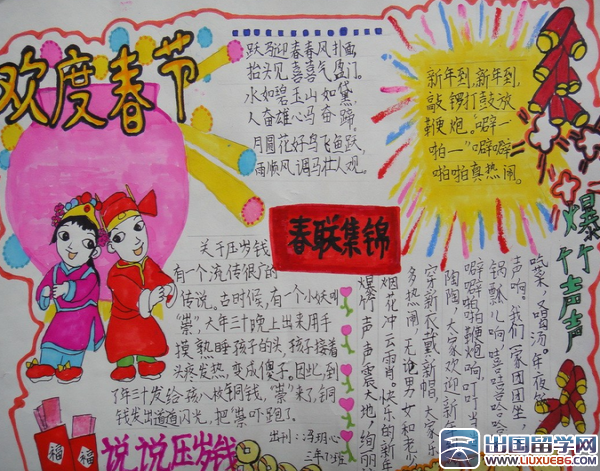 欢度春节
跃马迎春春风扑面,
抬头见喜喜气盈门。
水如碧玉山如黛,
人奋雄心马奋蹄。
月圆花好鸟飞鱼跃,
雨顺风调马壮人观。
新年到,新年到,
敲锣打鼓放
鞭炮。"噼一
啪一"噼噼
啪啪真热闹。
春联集锦
爆竹声声
关于压岁钱
有一个流传很广的
传说。古时候,有一个小妖叫
"祟",大年三十晚上出来用手
摸熟睡孩子的头,孩子接着
头疼发热,变成傻子。因此,到
了年三十发给孩八枚铜钱,"祟"来了,铜
钱发出道道闪光,把"祟"吓跑了。
吃菜,又喝汤。年夜饭
声响。我们一家团团坐,
锅瓢儿响
噼噼啪啪鞭炮响,叮叮当
陶陶,大家欢迎新
穿新衣戴新帽,大家乐
多热闹,无论男女和老小
烟花冲云霄。快乐的新年
爆竹声声震大地,绚丽
福
福
说说压岁钱
出刊:冯玥心
三年17班
出国留学网
WWW.LIUXUE86.COM